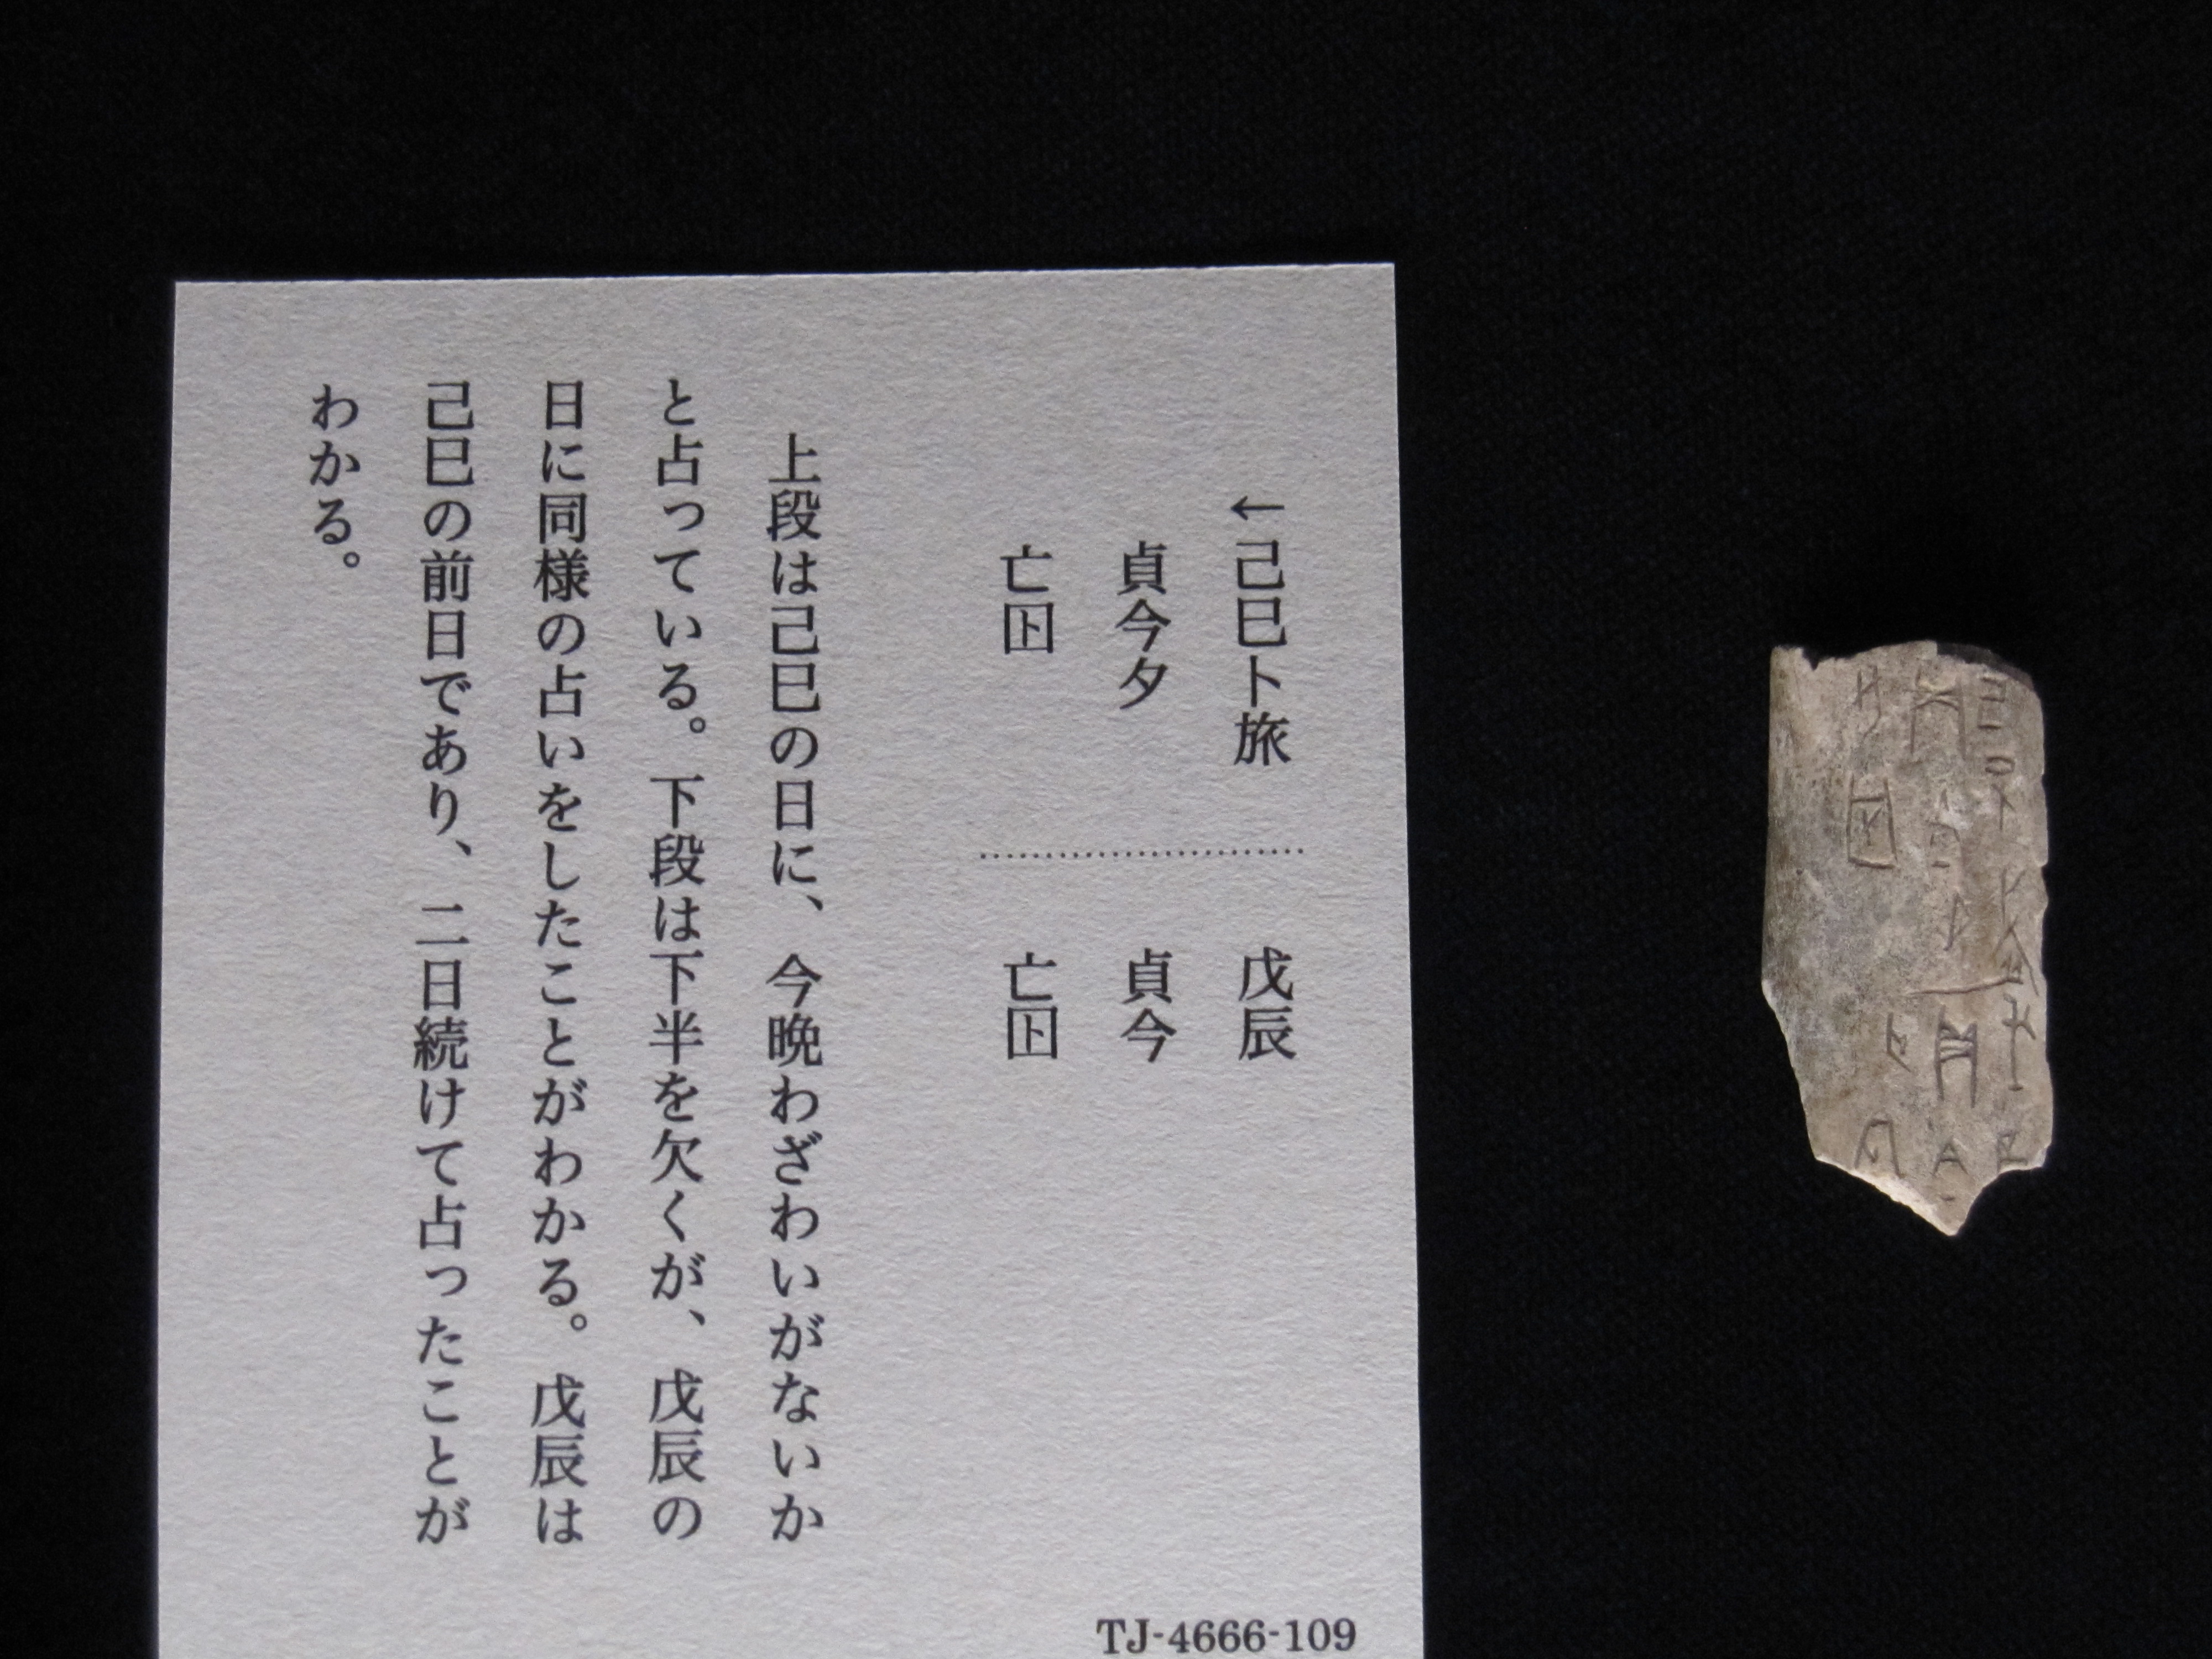 ←己巳卜旅
貞今夕
亡𡆥
戊辰
貞今
亡𡆥
上段は己巳の日に、今晩わざわいがないか
と占っている。下段は下半を欠くが、戊辰の
日に同様の占いをしたことがわかる。戊辰は
己巳の前日であり、二日続けて占ったことが
わかる。
TJ-4666-109